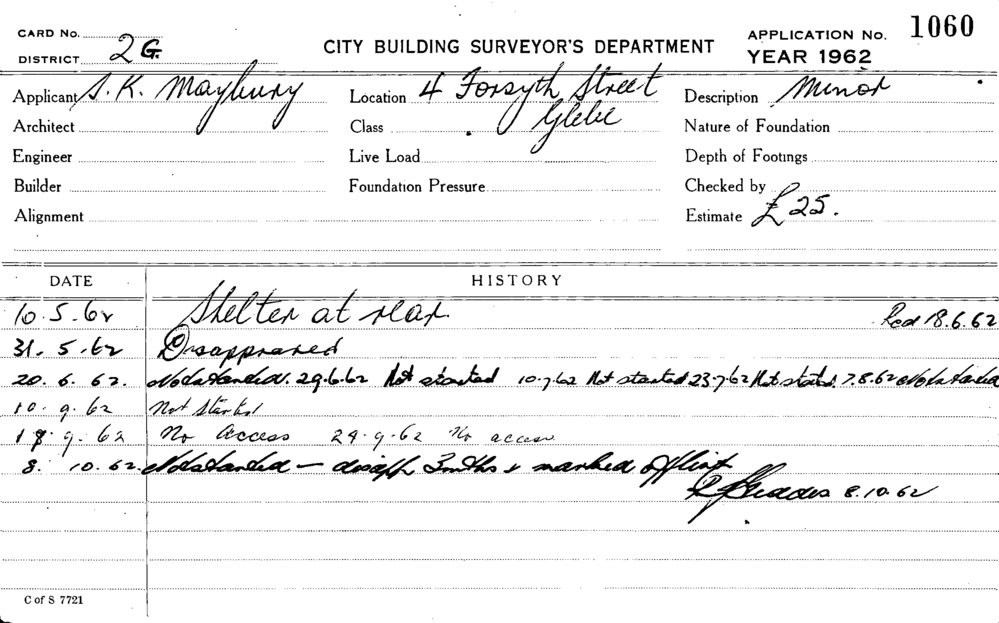 CARD No.
DISTRICT 2 G.
CITY BUILDING SURVEYOR'S DEPARTMENT
APPLICATION No. 1060
YEAR 1962
Applicant S. K. Maybury
Location 4 Forsyth Street
Glebe
Description Minor
Architect
Class
Nature of Foundation
Engineer
Live Load
Depth of Footings
Builder
Foundation Pressure
Checked by
Alignment
Estimate £25.
DATE HISTORY
10.5.62 Shelter at rear. Red 18.6.62
31.5.62 Disapproved
20.6.62. Not started. 29.6.62 Not started 10.7.62 Not started 23.7.62 Not started. 7.8.62 Not started
10.9.62 Not Started
18.9.62 No Access 24.9.62 No access
8.10.62. Not started — disapp 3 mths & marked off list
8.10.62
C of S 7721